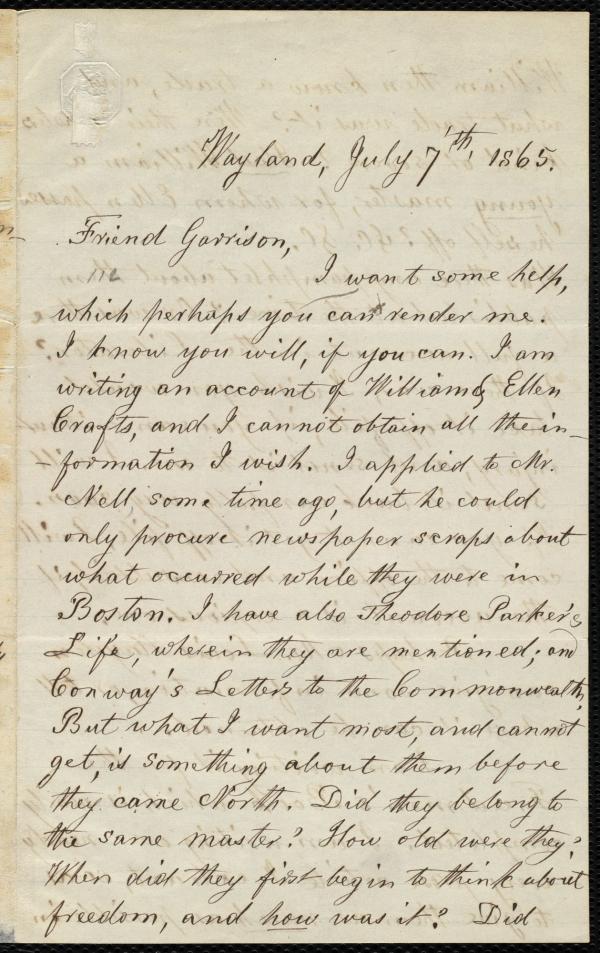 Wayland, July 7th, 1865.
Friend Garrison,
I want some help,
which perhaps you can render me.
I know you will, if you can. I am
writing an account of William & Ellen
Crafts, and I cannot obtain all the in-
-formation I wish. I applied to Mr.
Nell, some time ago, but he could
only procure newspaper scraps about
what occurred while they were in
Boston. I have also Theodore Parker's
Life, wherein they are mentioned; and
Conway's Letters to the Commonwealth,
But what I want most, and cannot
get, is something about them before
they came North. Did they belong to
the same master? How old were they?
When did they first begin to think about
freedom, and how was it? Did